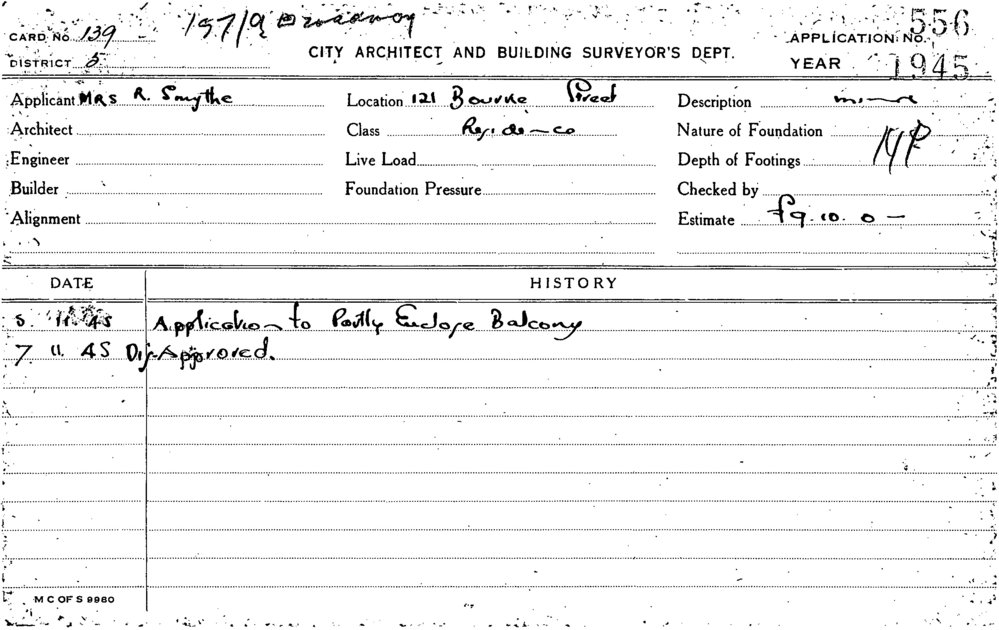 CARD No 139 197/9 Broadway APPLICATION No. 556
DISTRICT 5 CITY ARCHITECT AND BUILDING SURVEYOR'S DEPT. YEAR 1945
Applicant MRS R. Smythe Location 121 Bourke Street Description minor
Architect Class Residence Nature of Foundation
Engineer Live Load Depth of Footings
Builder Foundation Pressure Checked by
Alignment Estimate £9.10.0 —
DATE HISTORY
5. 11. 45 Application to Partly Enclose Balcony
7 11. 45 Dis-Approved.
M C OF S 9960